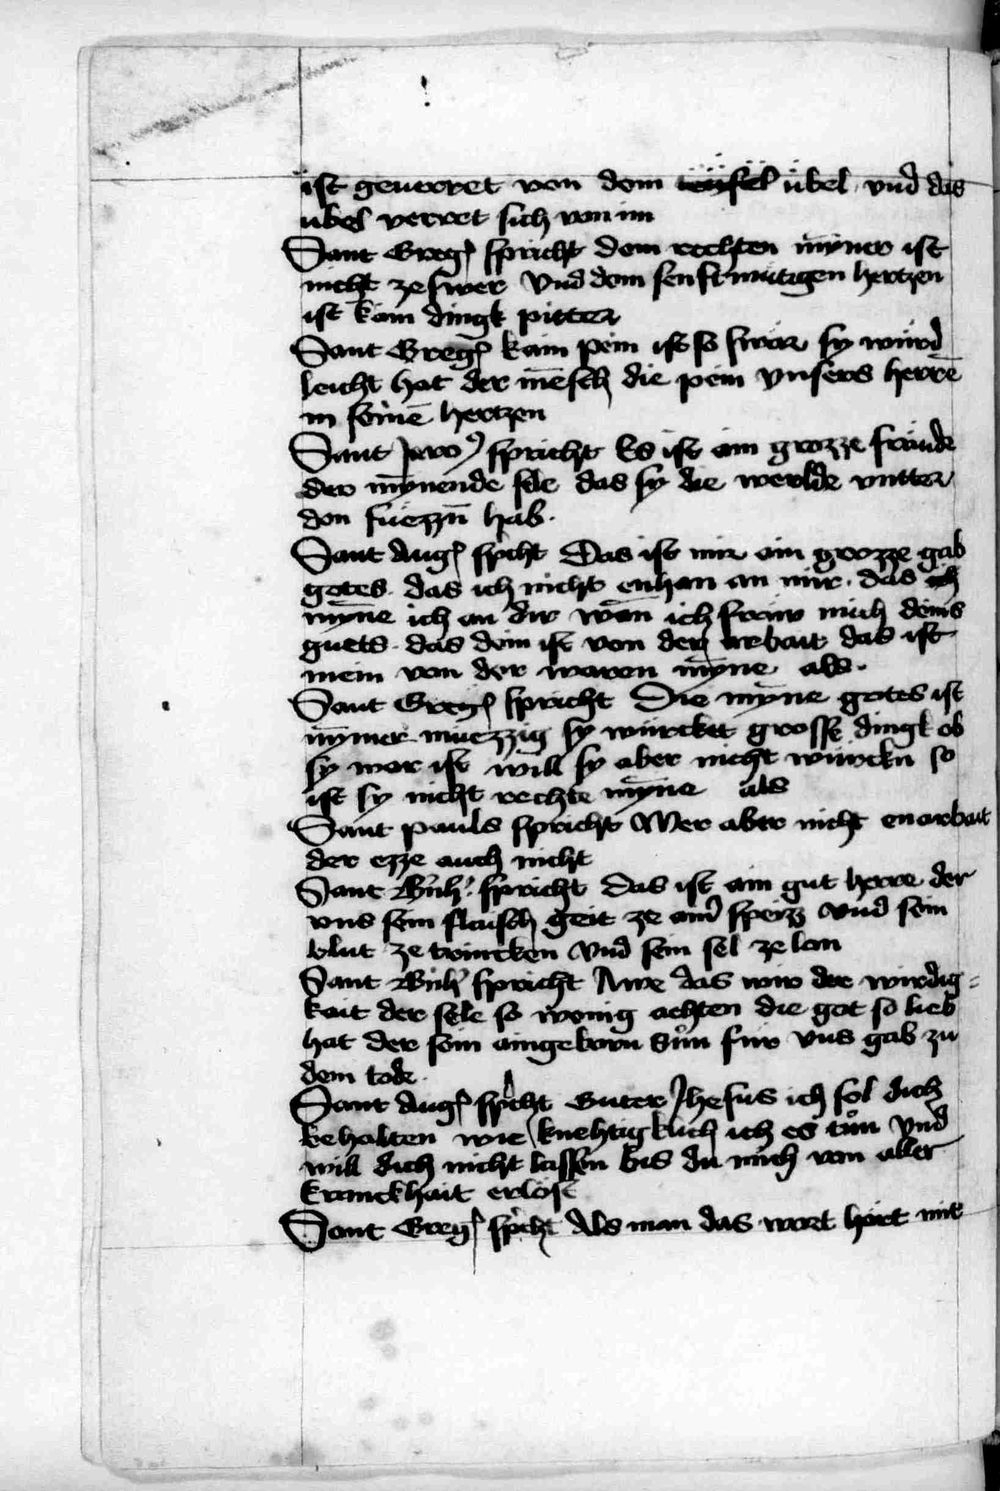 ist geuerret von dem teüfel übel vnd das
übel verret sich von im
Sant Greg᷒ spricht dem rechten mỹner ist
nicht ze swer Vnd dem senftmütigen hertzen
ist kain dingk pitter
Sant Greg᷒ kain pein ist so swär sy würd
leicht hat der mēsch die pein vnsers herrē
in seinē hertzen
Sant Jero᷒ spricht Es ist ain grozze fräude
der mỹnende sele das sy die werlde vntter
den füezzn̄ hab.
Sant Aug᷒ sp̓cht Das ist mir ain grozze gab
gotes. das ich nicht enhan an mir. das ich
mỹne ich an dir wān ich fräw mich deins
guets. das dein ist von der arbait das ist
mein von der waren mỹne als.
Sant Greg᷒ spricht Die mỹne gotes ist
nȳmer müezzig sy würcket grosse dingk ob
sy war ist will sy aber nicht würckn so
ist sy nicht rechte mỹne als
Sant pauls spricht Wer aber nicht enarbait
der ezze auch nicht
Sant Bernh᷒. spricht das ist ain gut herre der
vns sein flaisch geit ze ain̄ speizz vnd sein
blut ze trincken vnd sein sel ze lon
Sant Bernh᷒ spricht Awe das wir der wirdig=
kait der sele so wenig achten die got so lieb
hat der sein aingeborn sůn für vns gab zu
dem tode.
Sant Aug᷒ sp̓cht Guter Jhesus ich sol dich
behalten wie knehtigklich ich es tůn vnd
will dich nicht lassen bis du mich von aller
kranckhait erlöst
Sant Greg᷒ sp̓cht Als man das wort hört mit